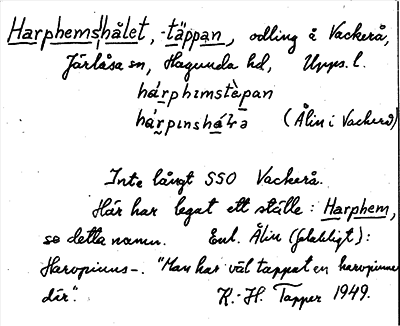 Harphemshålet, -täppan, odling å Vackerå,
Järlåsa sn, Hagunda hd, Upps. l.
hárphɪmstὲpan
hárpɪnshåLə (Ålin i Vackerå)
Inte långt SSO Vackerå.
Här har legat ett ställe: Harphem,
se detta namn. Enl. Ålin (plakligt):
Harvpinns-. "Man har väl tappat en harvpinne
där".
K.-H. Tapper 1949.